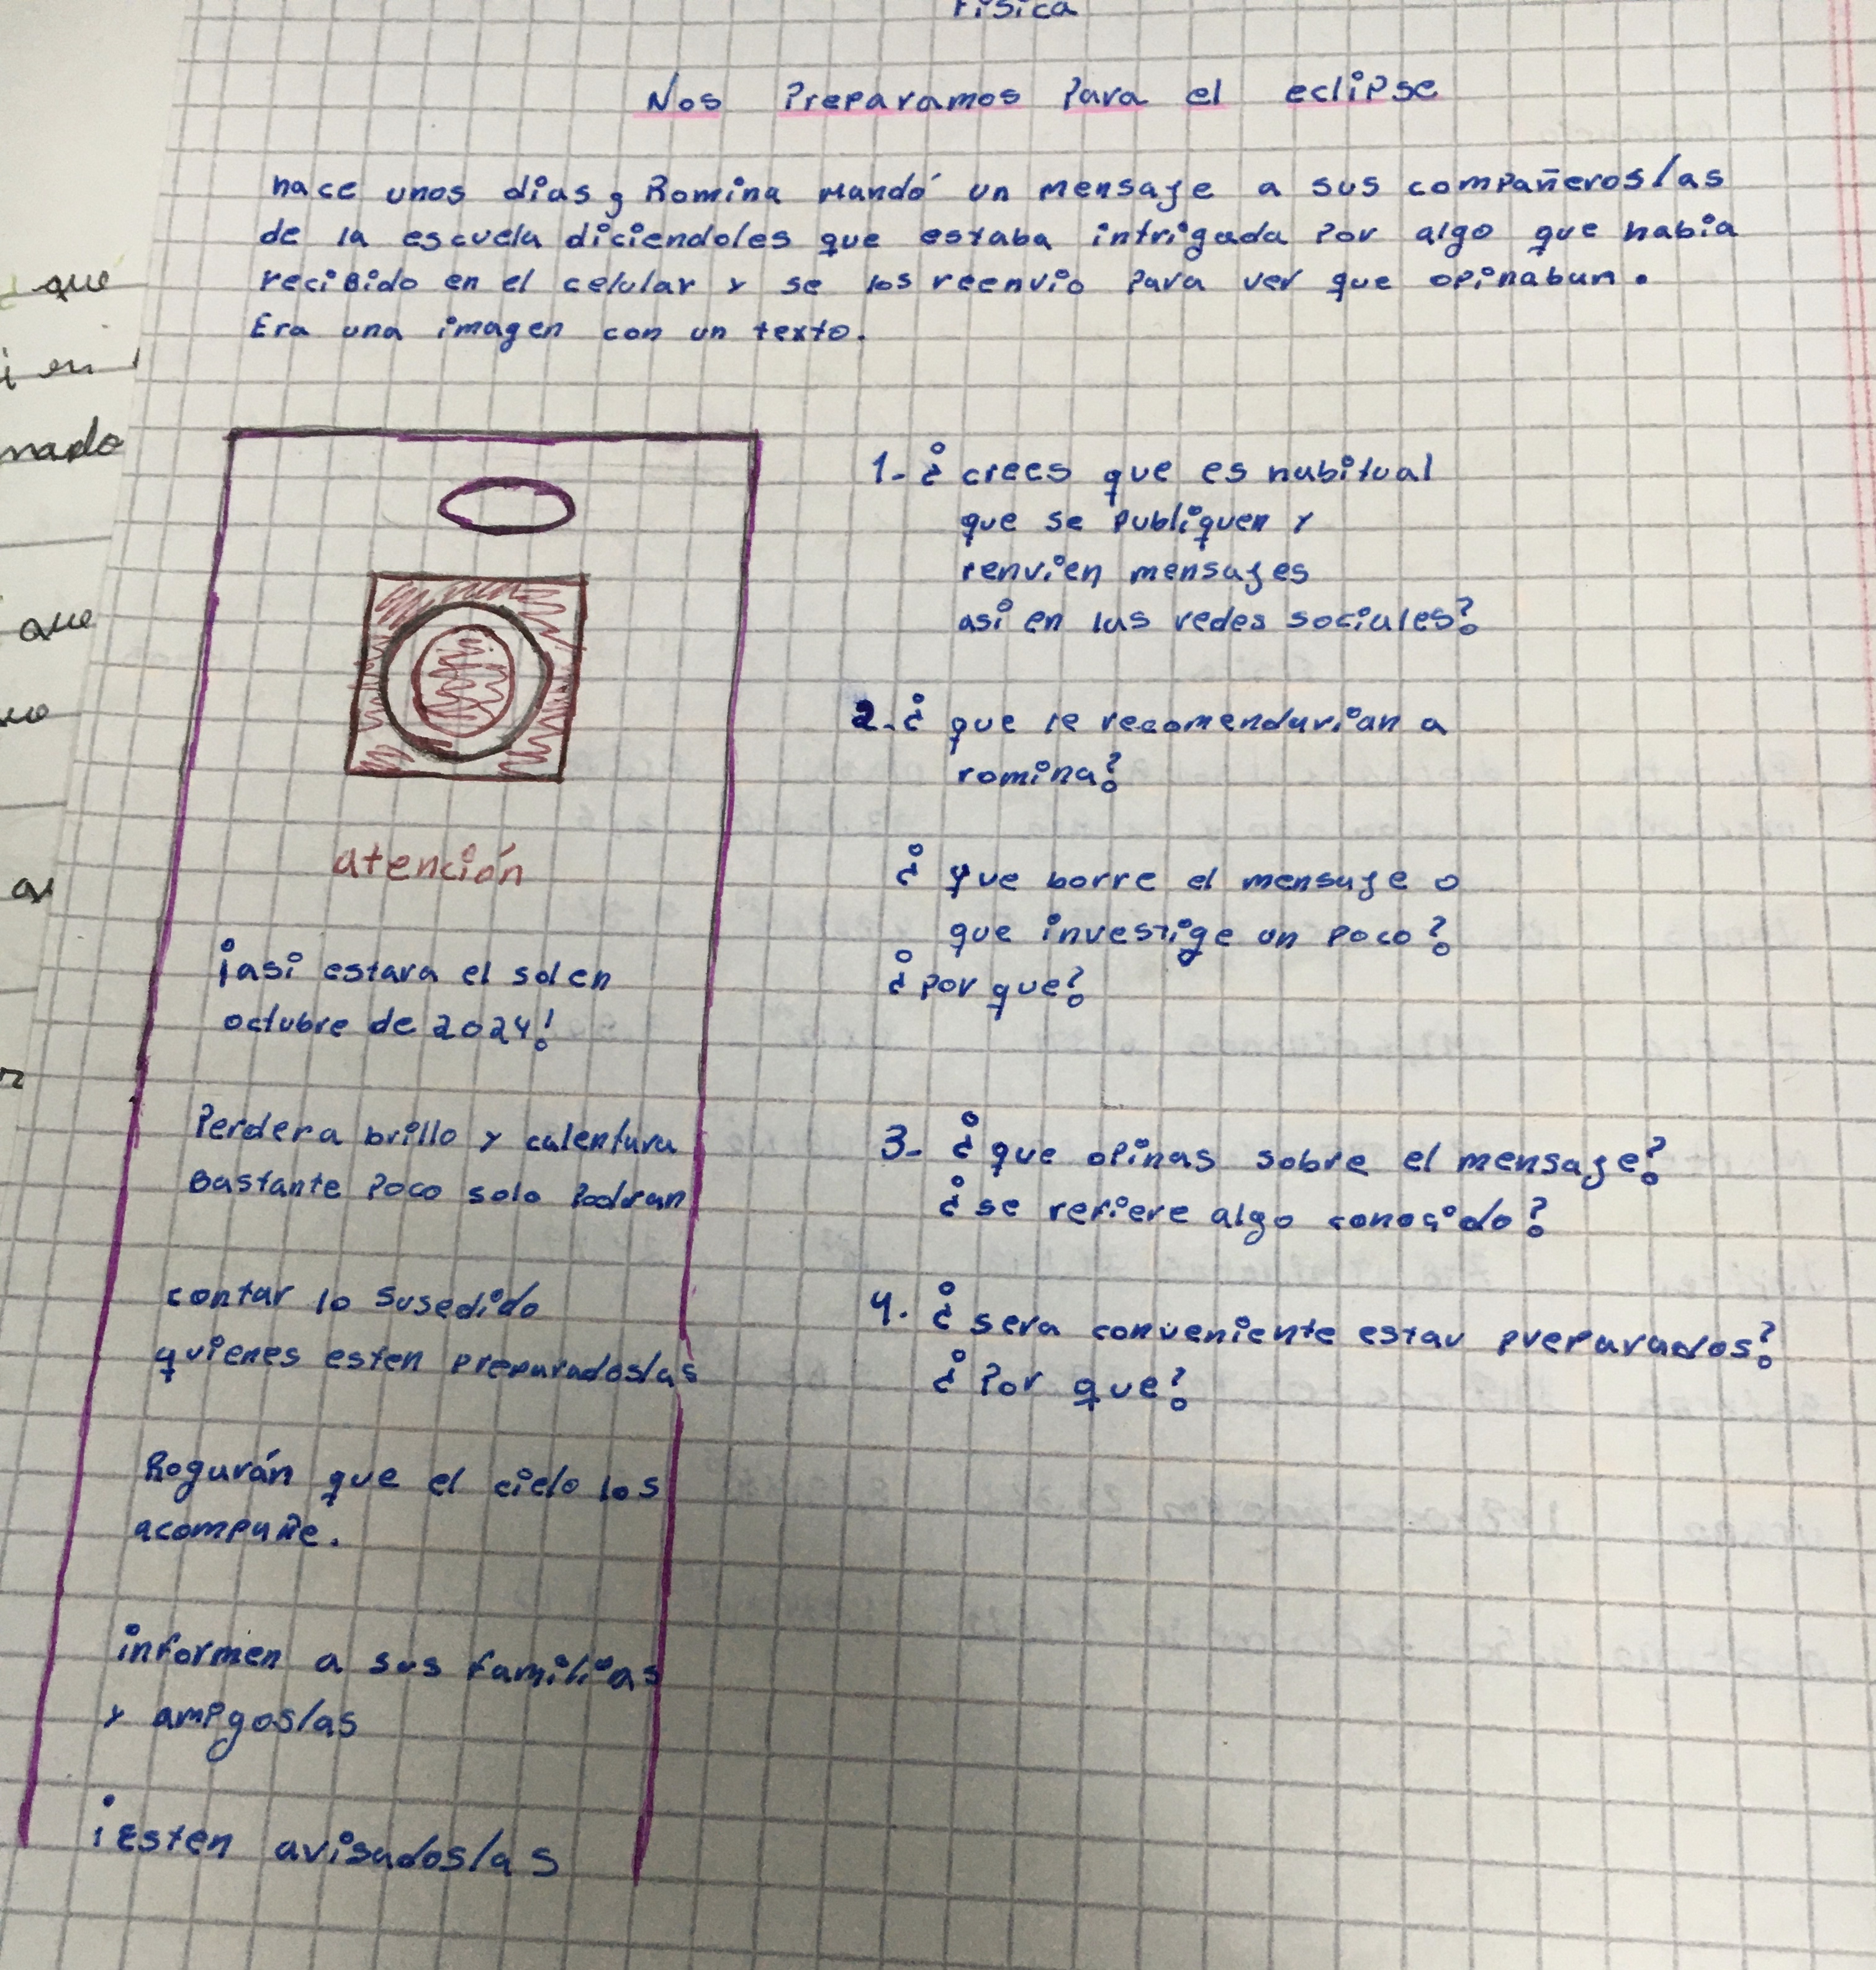 Fisica
Nos Preparamos Para el eclipse
hace unos dias, Romina Mandó un mensaje a sus compañeros/as
de la escuela diciendoles que estaba intrigada Por algo que habia
recibido en el celular y se los reenvio Para ver que opinaban.
Era una imagen con un texto.
atención
¡asi estara el sol en
octubre de 2024!
Perdera brillo y calentura
Bastante Poco solo Podran
contar lo susedido
quienes esten preparados/as
Rogarán que el cielo los
acompañe.
informen a sus familias
y amigos/as
¡Esten avisados/as
1- ¿ crees que es habitual
que se publiquen y
renvien mensajes
asi en las redes sociales?
2. ¿ que le recomendarian a
romina?
¿ que borre el mensaje o
que investige un Poco?
¿ Por que?
3- ¿ que opinas sobre el mensaje?
¿ se refiere algo conocido?
4. ¿ sera conveniente estar preparados?
¿ Por que?
que
i en
mado
que